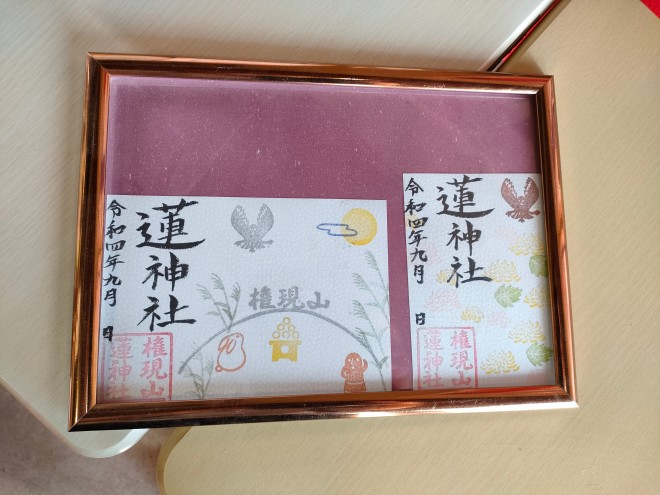 蓮神社
令和四年九月 日
権現山
権現山
蓮神社
蓮神社
令和四年九月 日
権現山
蓮神社